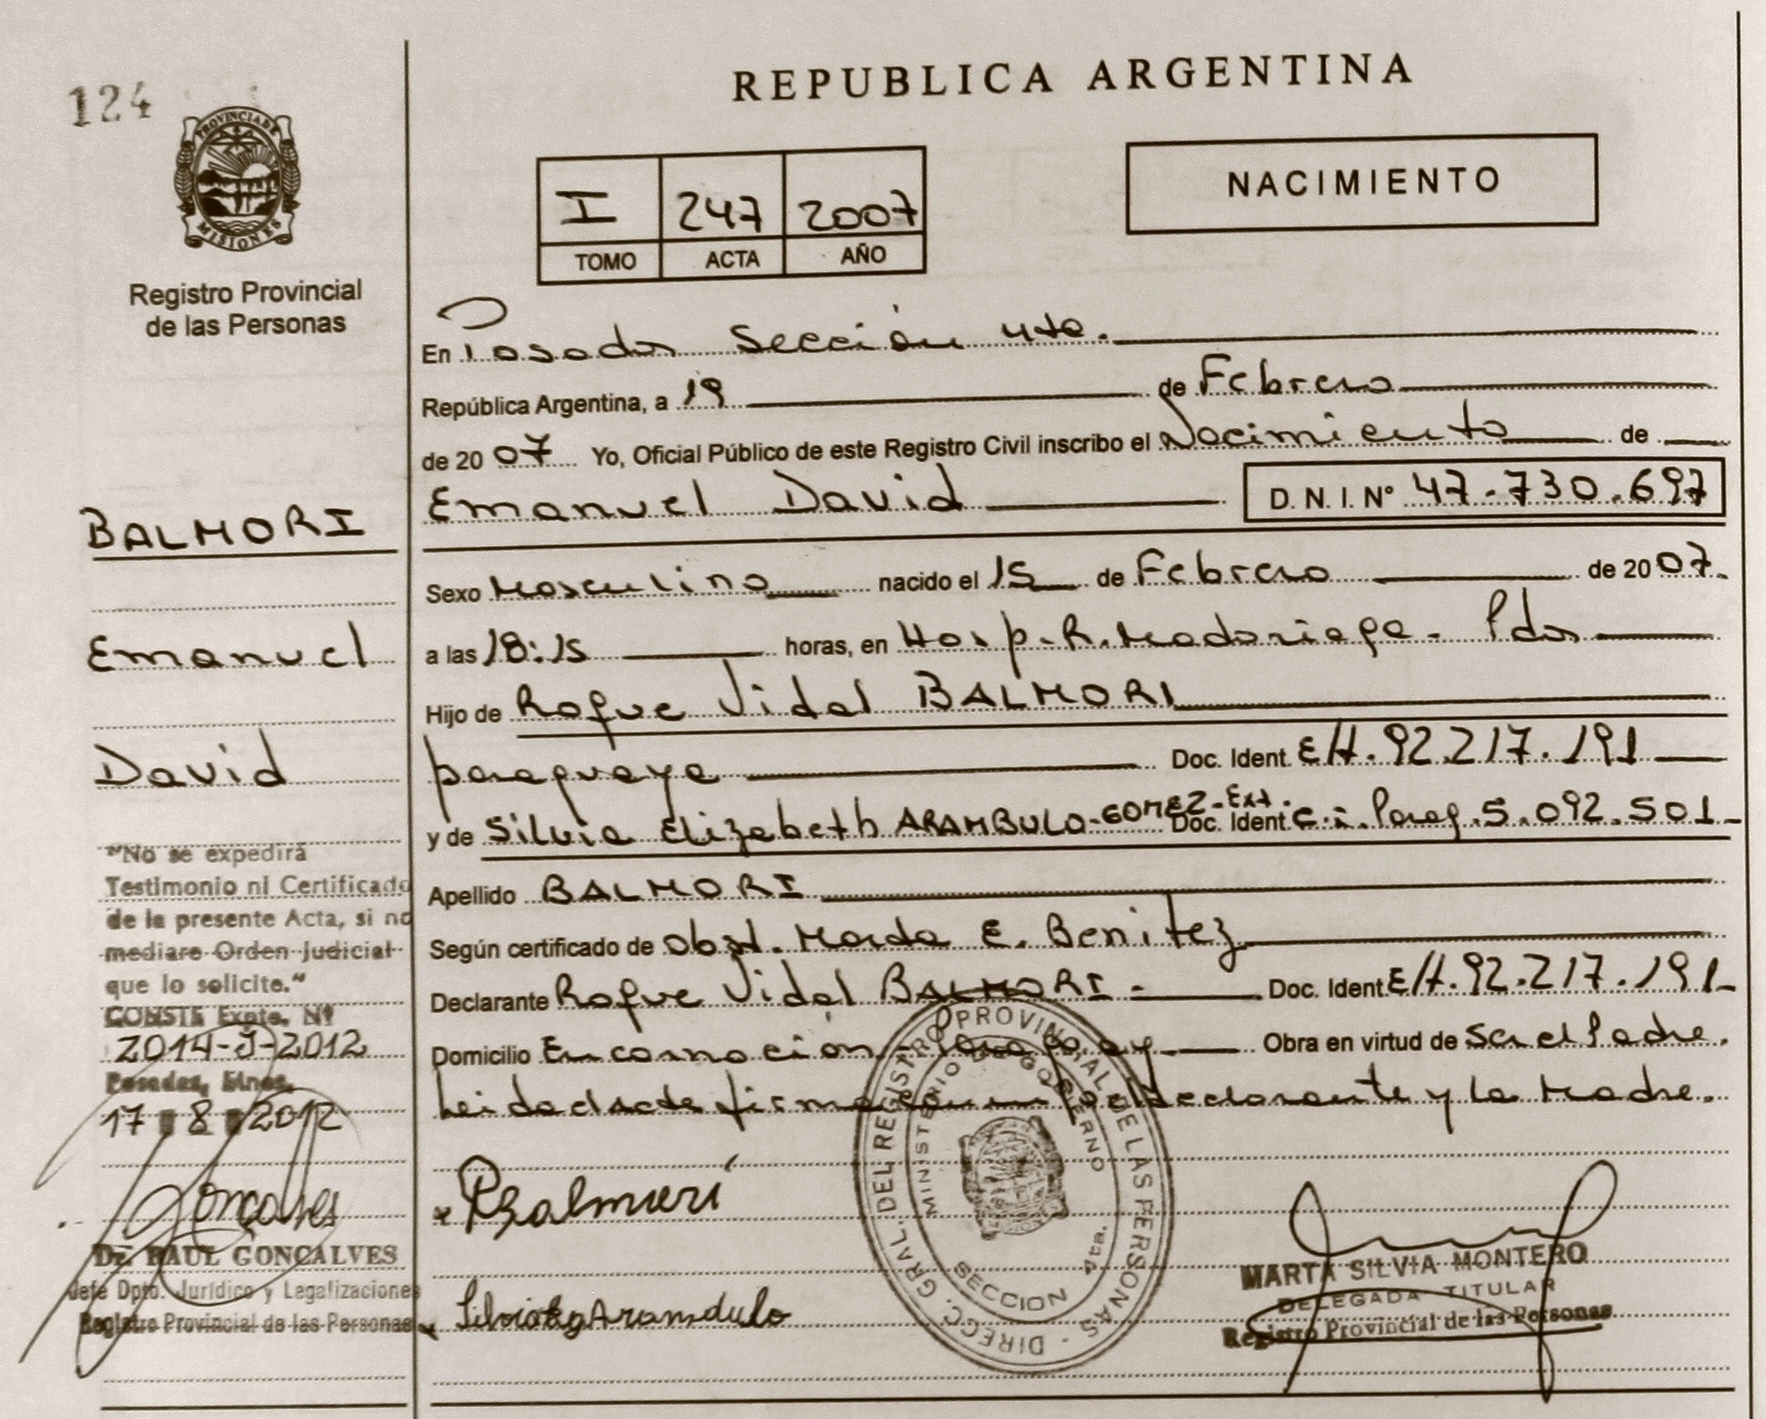 124
PROVINCIA DE
MISIONES
Registro Provincial
de las Personas
REPUBLICA ARGENTINA
I 247 2007
TOMO ACTA AÑO
NACIMIENTO
En Posadas Sección 4ta.
República Argentina, a 19 de Febrero
de 2007 Yo, Oficial Público de este Registro Civil inscribo el Nacimiento de
Emanuel David D.N.I.Nº 47.730.697
Sexo Masculino nacido el 15 de Febrero de 2007.
a las 18:15 horas, en Hosp. R. Madariaga. Pdas
Hijo de Roque Vidal BALMORI
paraguaya Doc. Ident. EH. 92.217.191
y de Silvia Elizabeth ARAMBULO-GOMEZ-Ext. Doc. Ident. C.i. Parag. 5.092.501
Apellido BALMORI
Según certificado de obst. E. Benitez
Declarante Roque Vidal BALMORI Doc. Ident. EH. 92.217.191
Domicilio Encarnación - Paraguay Obra en virtud de Ser el Padre.
Leida el acta firma el declarante y la Madre.
BALMORI
Emanuel
David
"No se expedirá
Testimonio ni Certificado
de la presente Acta, si no
mediare Orden Judicial
que lo solicite."
CONSTE Expte. Nº
2014-J-2012
Posadas, Mnes.
17 8 2012
Goncalves
Dr. RAUL GONCALVES
Jefe Dpto. Jurídico y Legalizaciones
Registro Provincial de las Personas
DIRECC. GRAL. DEL REGISTRO PROVINCIAL DE LAS PERSONAS
MINISTERIO DE GOBIERNO
SECCION 4ta.
MARTA SILVIA MONTERO
DELEGADA TITULAR
Registro Provincial de las Personas